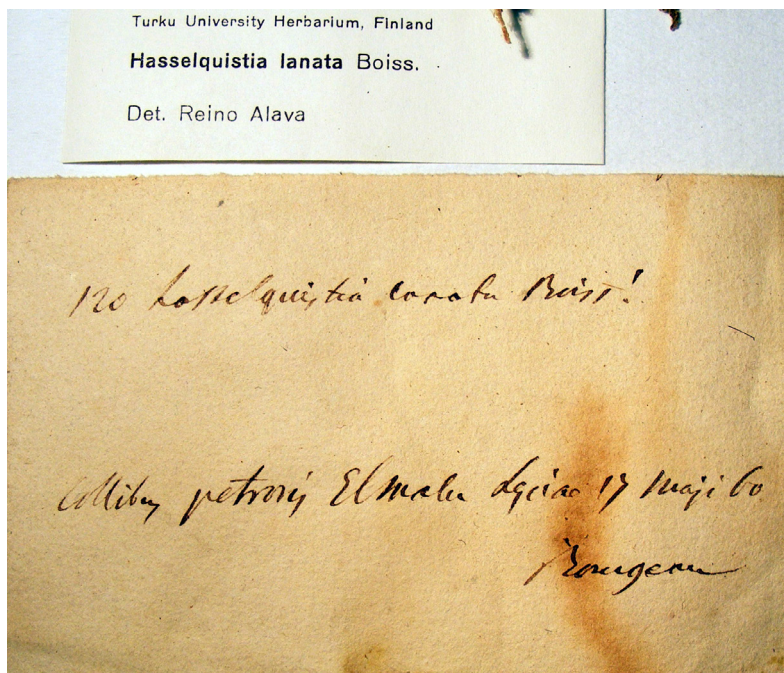 Turku University Herbarium, Finland
Hasselquistia lanata Boiss.
Det. Reino Alava
120 Hasselquistia lanata Boiss!
Collibus petrosis Elmalu Lyciae 17 maji 60
Bourgeau